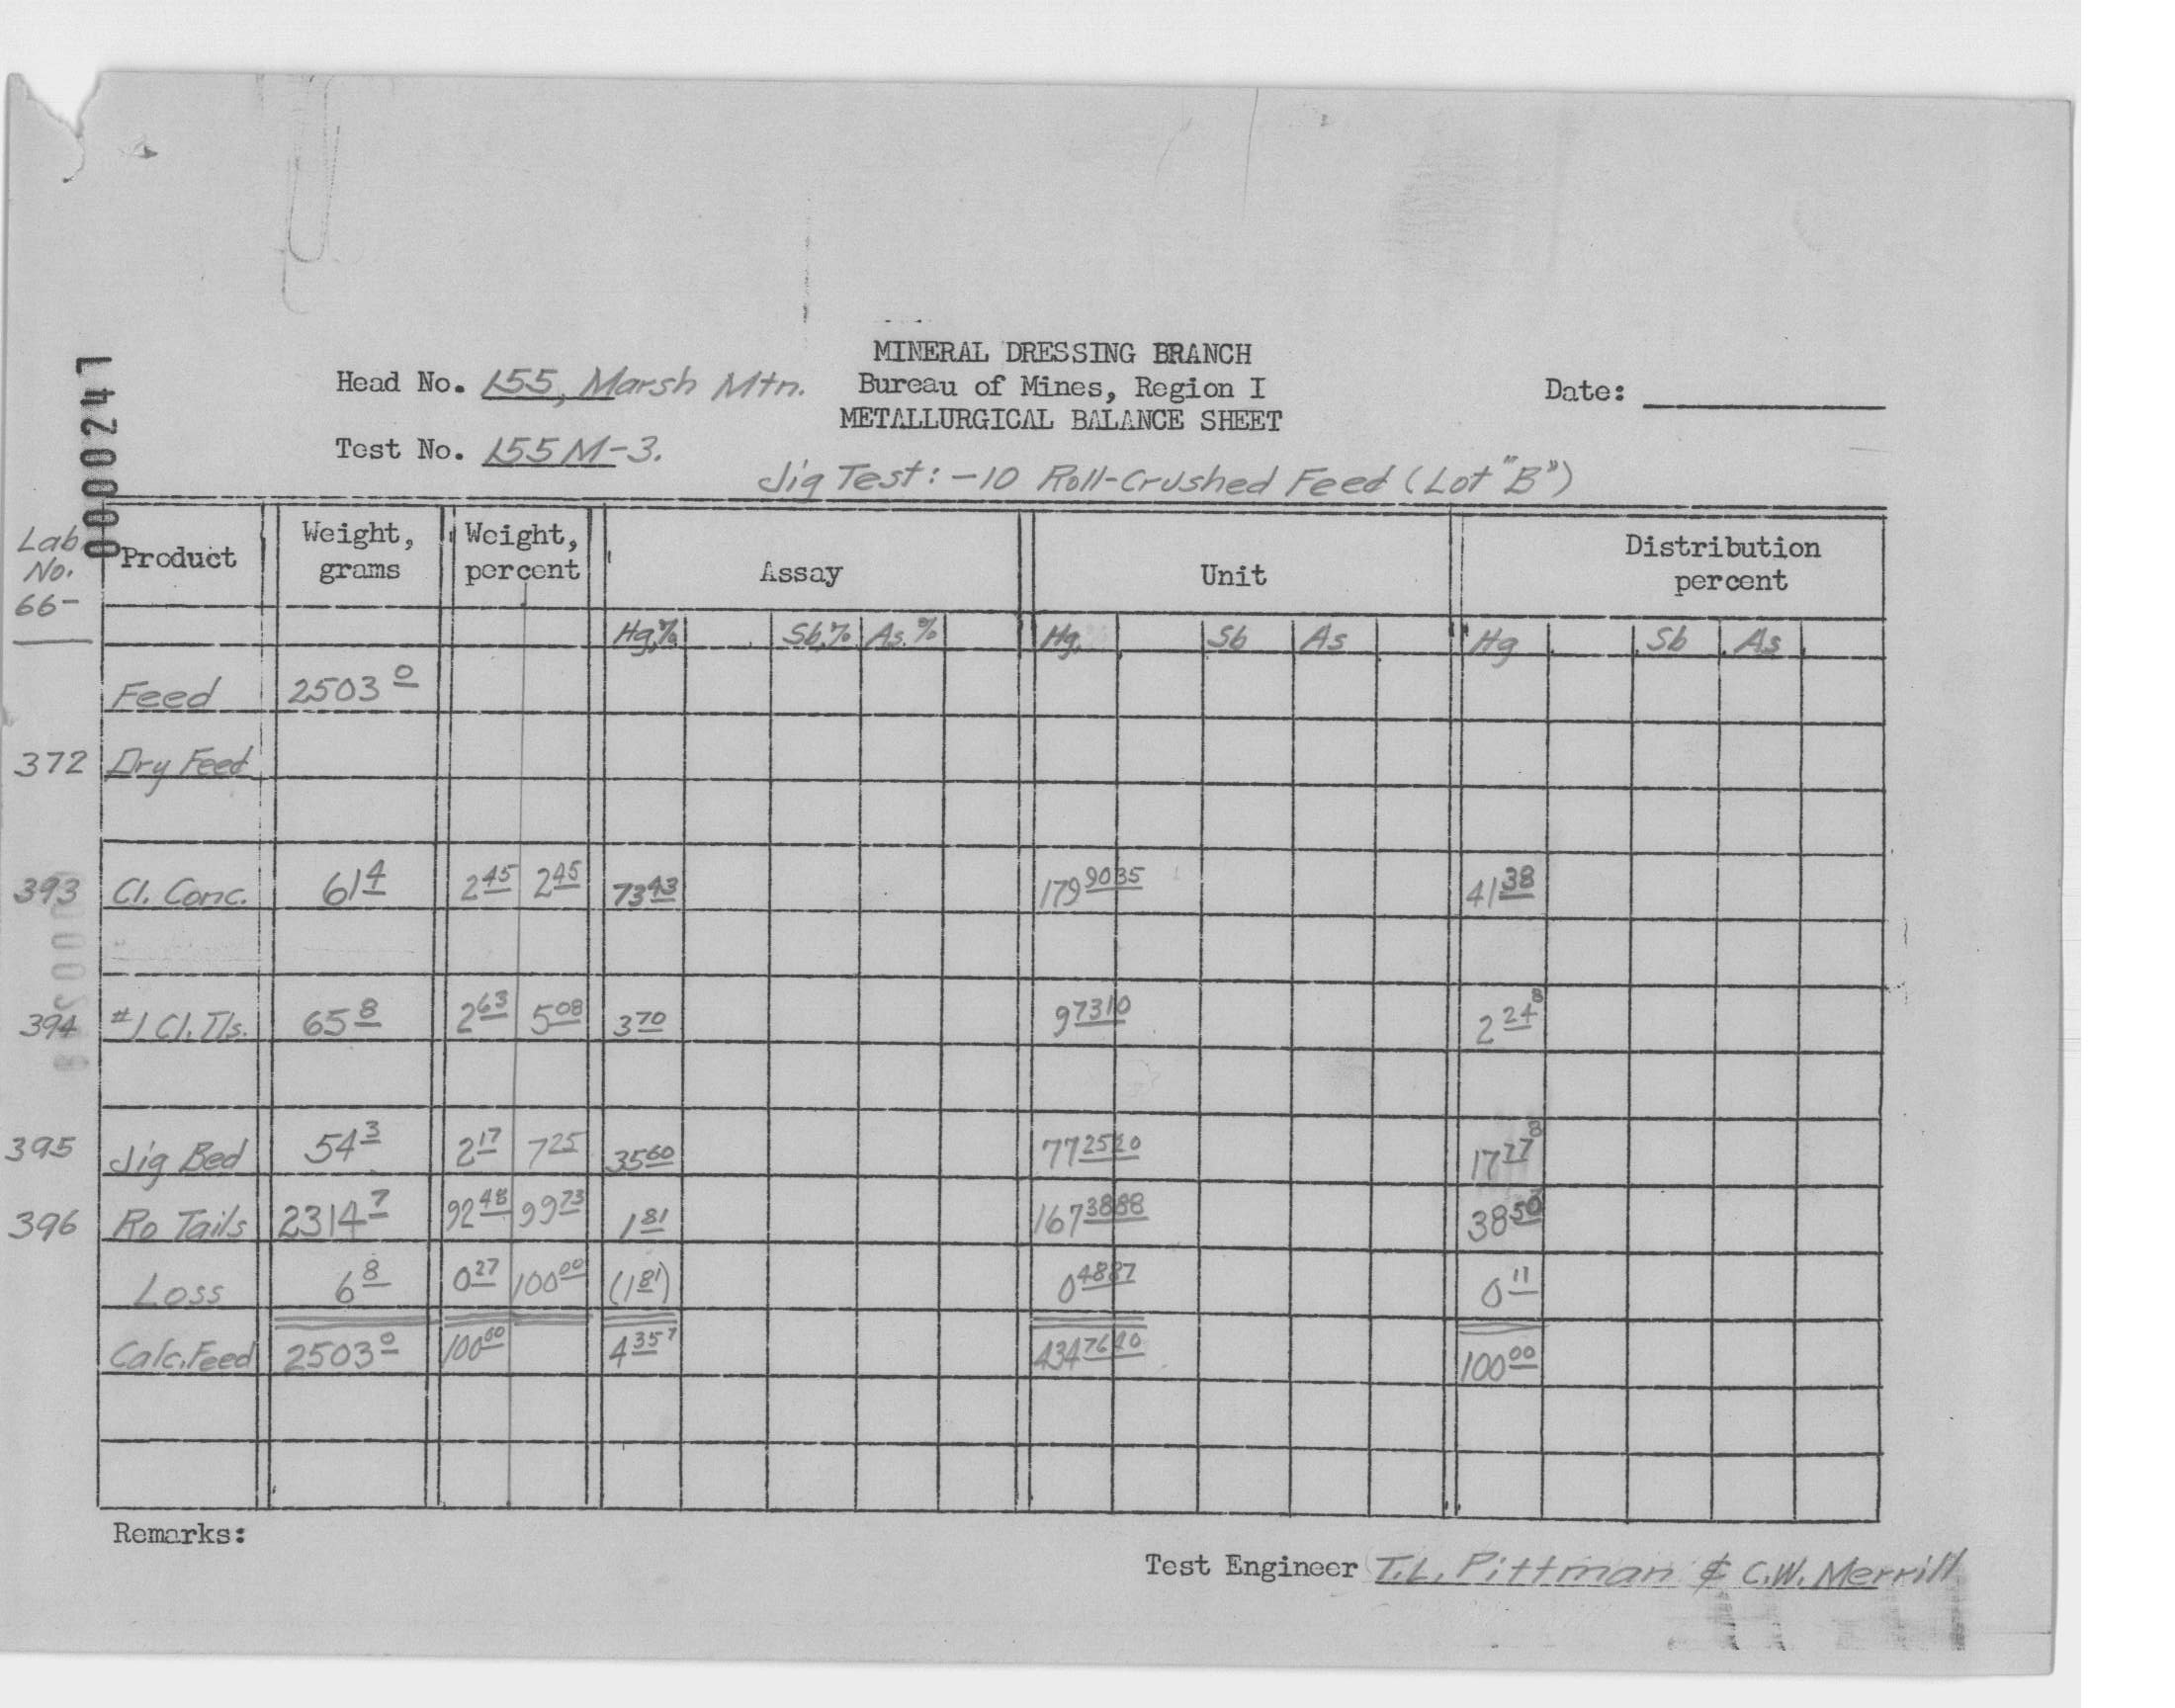 MINERAL DRESSING BRANCH
Head No. 155, Marsh Mtn. Bureau of Mines, Region I Date:
METALLURGICAL BALANCE SHEET
Test No. 155M-3.
Jig Test: -10 Roll-Crushed Feed (Lot "B")
0000247
Lab. No. 66- Product Weight, grams Weight, percent Assay Unit Distribution percent
Hg,% Sb,% As.% Hg. Sb As Hg Sb As
Feed 2503 0
372 Dry Feed
393 Cl. Conc. 61 4 2 45 2 45 73 43 179 9035 41 38
394 #1 Cl. Tls. 65 8 2 63 5 08 3 70 9 7310 2 24 8
395 Jig Bed 54 3 2 17 7 25 35 60 77 2520 17 77 8
396 Ro Tails 2314 7 92 48 99 73 1 81 167 3888 38 50
Loss 6 8 0 27 100 00 (1 81) 0 4887 0 11
Calc. Feed 2503 0 100 00 4 35 7 434 7640 100 00
Remarks:
Test Engineer T.L. Pittman & C.W. Merrill